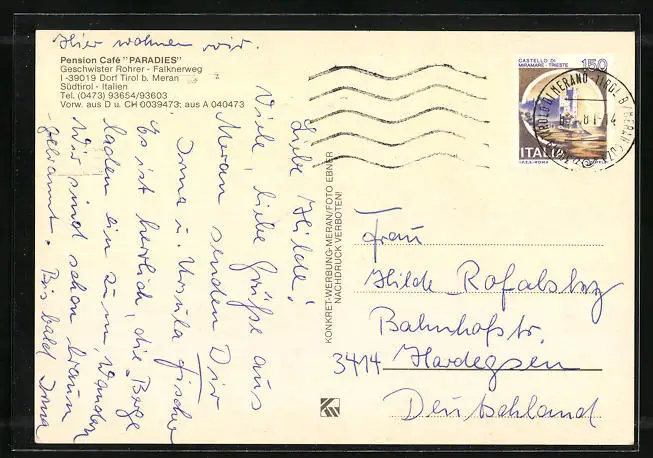 Hier wohnen wir.
Pension Café "PARADIES"
Geschwister Rohrer - Falknerweg
I -39019 Dorf Tirol b. Meran
Südtirol - Italien
Tel. (0473) 93654/93603
Vorw. aus D u. CH 0039473; aus A 040473
Liebe Hilde!
Viele, liebe Grüße aus
Meran senden Dir
Irma u. Ursula Fischer
Es ist herrlich, die Berge
laden ein zum Wandern
Wir sind schon braun
gebrannt. Bis bald Irma
KONKRET-WERBUNG-MERAN/FOTO EBNER
NACHDRUCK VERBOTEN!
CASTELLO DI
MIRAMARE - TRIESTE
150
ITALIA
I.P.Z.S.-ROMA
81-14
Frau
Hilde
Bahnhofstr.
3414 Hardegsen
Deutschland